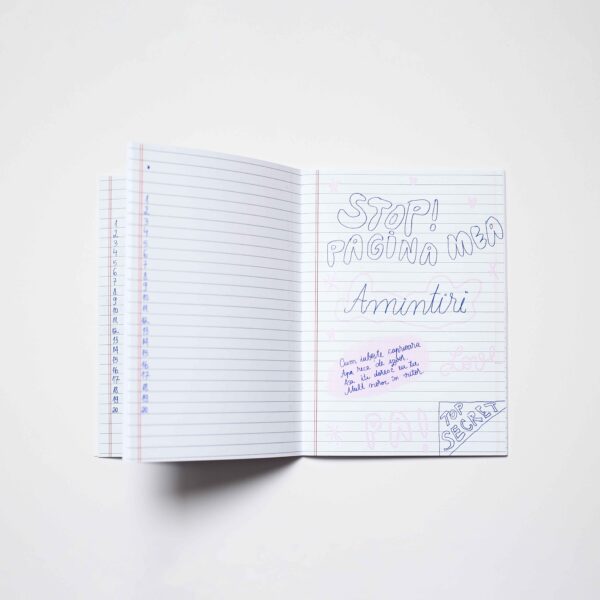 1
2
3
4
5
6
7
8
9
10
11
12
13
14
15
16
17
18
19
20
1
2
3
4
5
6
7
8
9
10
11
12
13
14
15
16
17
18
19
20
STOP!
PAGINA MEA
Amintiri
Cum iubește caprioara
Apa rece de izvor
Așa iti doresc eu tie
Mult noroc in viitor
Love!
PA!
TOP
SECRET